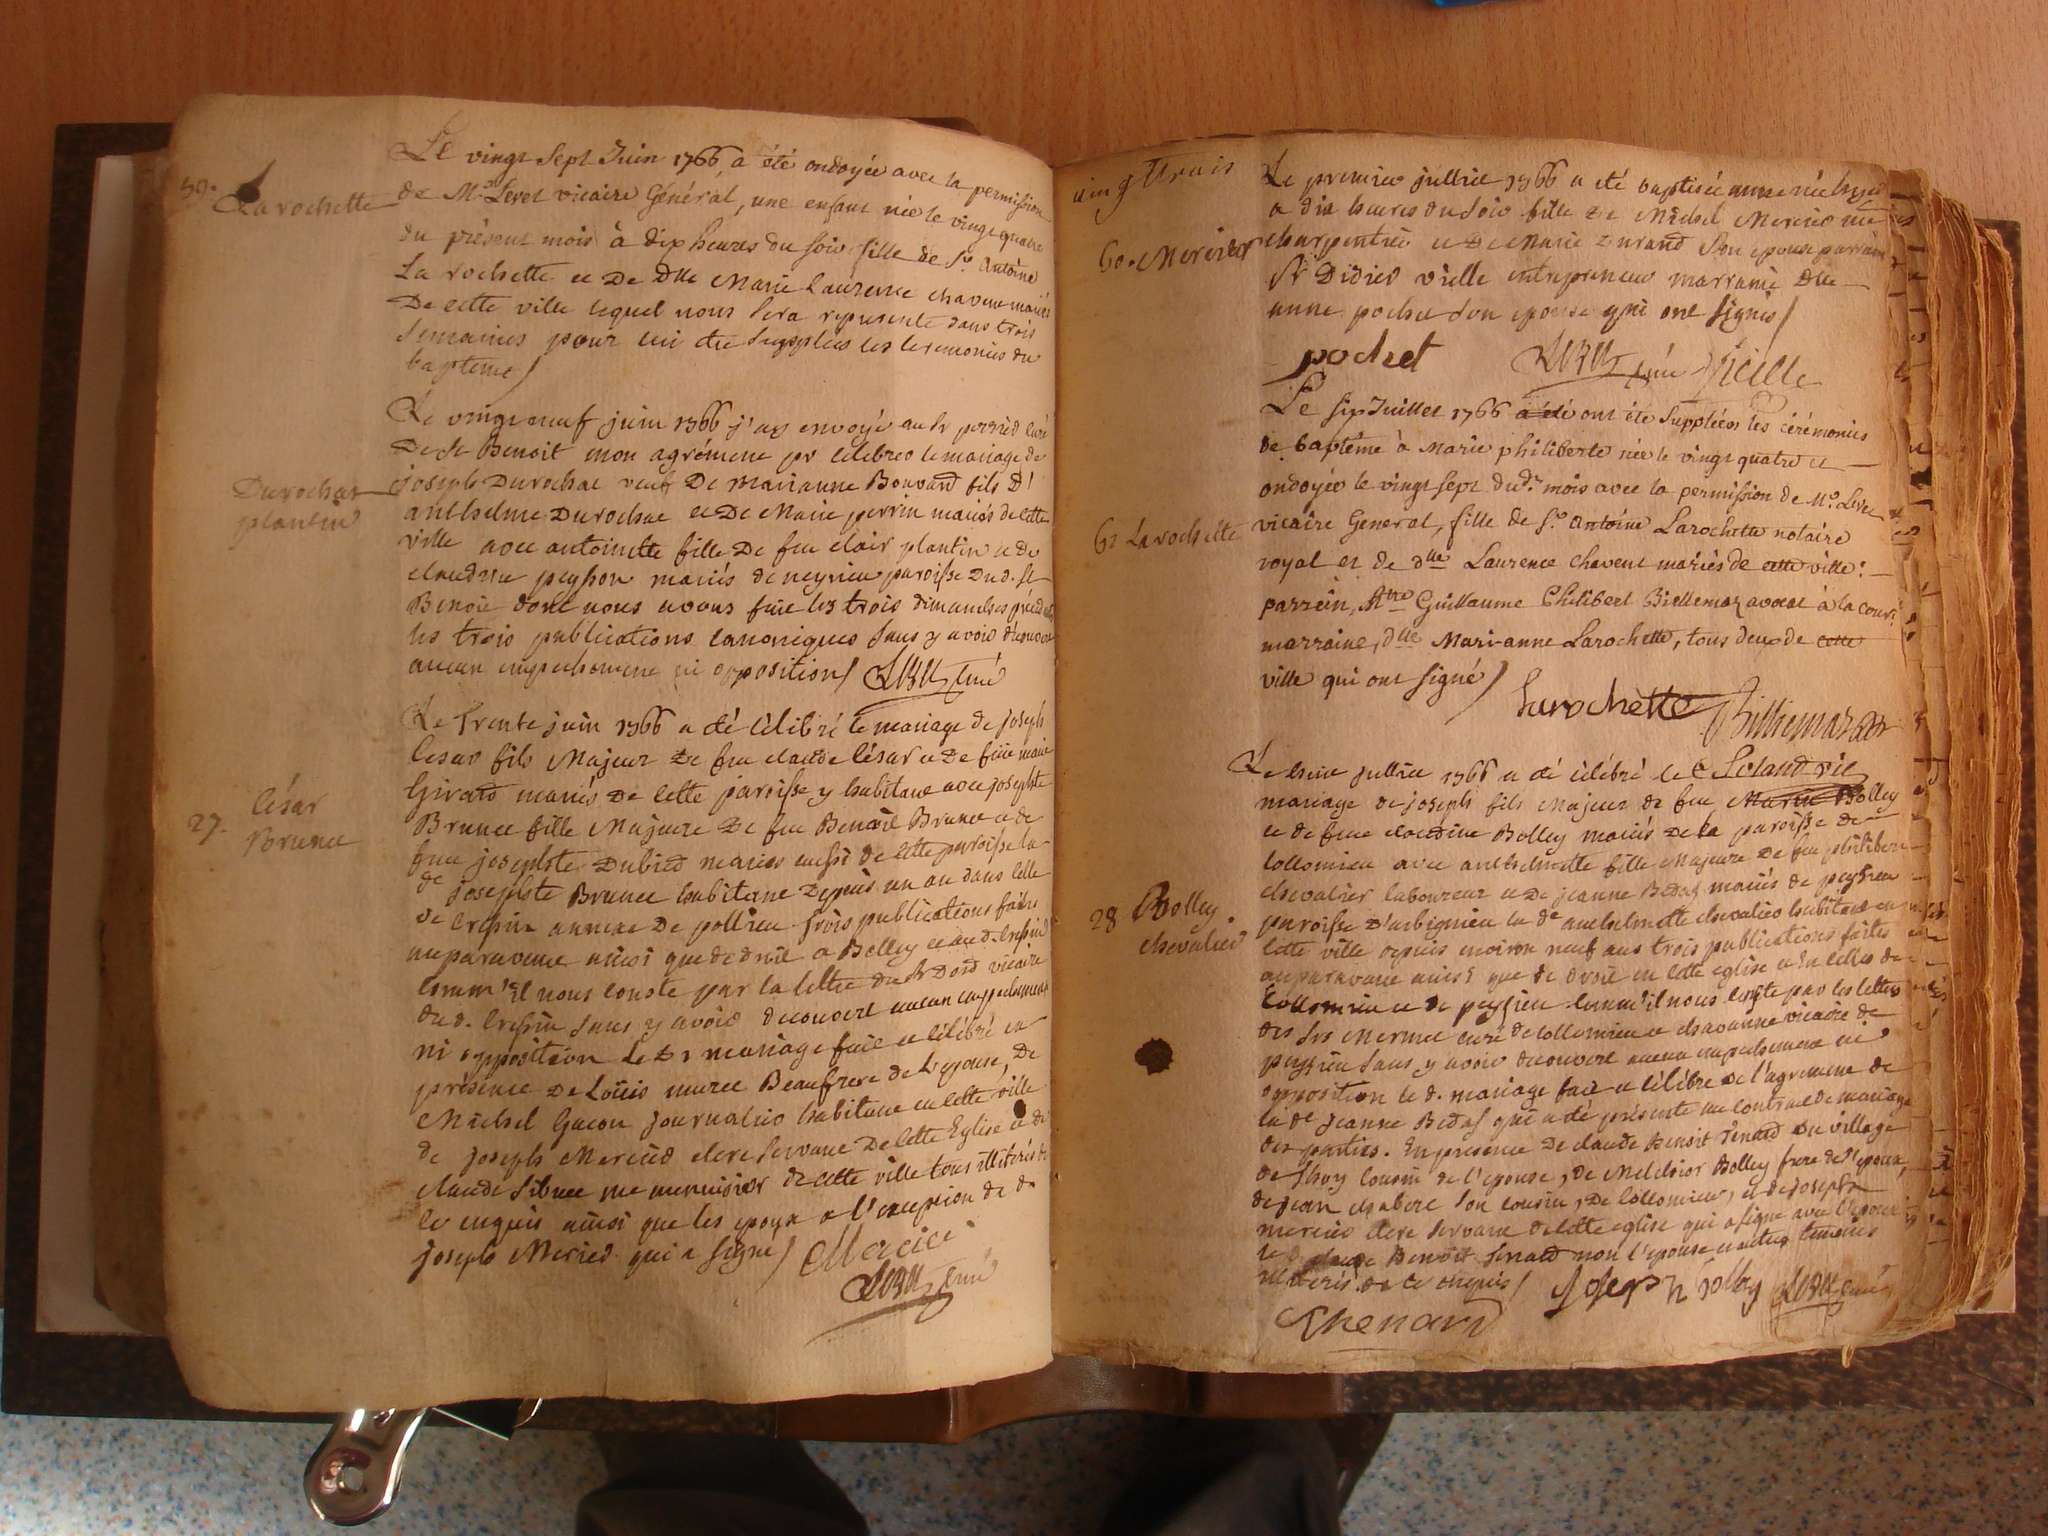 59.
La rochette
Le vingt Sept Juin 1766, a été ondoyée avec la permission
de Mr. Levet vicaire Général, une enfant née le vingt quatre
du présent mois à dix heures du soir fille de Sr. Antoine
La rochette et De Dlle Marie Laurence chavent mariés
De cette ville lequel nous sera representé dans trois
semaines pour lui être Supplées les ceremonies du
bapteme/
Durochat
plantin
Le vingt neuf juin 1766 j'ay envoyé au Sr curé
De St Benoit mon agrément pr célébrer le mariage de
joseph Durochat veuf De marianne Bouvard fils D'
anthelme Durochat et De Marie perrin mariés de cette
ville avec antoinette fille De feu clair plantin et de
claudine peysson mariés de neyrieu paroisse dud. St
Benoit dont nous avons fait les trois dimanches
les trois publications canoniques sans y avoir découvert
aucun empechement ni opposition/ curé
27.
César
Brunet
Le trente juin 1766 a été célébré le mariage de joseph
César fils Majeur de feu claude César et De feue marie
Girard mariés De cette paroisse y habitant avec josephte
Brunet fille Majeure De feu Benoit Brunet et de
feue josephte Dubied mariés aussi de cette paroisse la
de josephte Brunet habitant depuis un an dans celle
de Cressin annexe De pollieu trois publications faites
auparavant ainsi que de droit a Belley et aud. Cressin
comm'il nous conste par la lettre du Sr vicaire
dud. Cressin sans y avoir decouvert aucun empechement
ni opposition le d. mariage fait et célébré en
présence De Loüis muret Beaufrere de l'epouse, De
Michel Gacon journalier habitant en cette ville
de joseph Mercier clerc servant De cette Eglise et de
claude me menuisier de cette ville tous illitérés de
ce enquis ainsi que les epoux a l'exception de d.
joseph Mercier qui a signé/ Mercier
curé
vingt trois
60. Mercier
Le premier juillet 1766 a été baptisée anne née hyer
a dix heures du soir fille de Michel Mercier me
charpentier et De Marie Durand son epouse parrain
Sr Didier vielle entrepreneur marraine Dlle
anne pochet son epouse qui ont signés/
pochet curé Vielle
61 Larochette
Le six Juillet 1766 a été ont été Supplées les cérémonies
de baptême à Marie philiberte née le vingt quatre et
ondoyée le vingt sept dud. mois avec la permission de Mr. Levet
vicaire General, fille de Sr. Antoine Larochette notaire
royal et de dlle Laurence chavent mariés de cette ville:
parrain, Mtre Guillaume Philibert Billiemaz avocat à la cour:
marraine, dlle Marianne Larochette, tous deux de cette
ville qui ont signé/
Larochette Billiemaz
28
Bolley
chevalier
Le huit juillet 1766 a été célébré le
mariage de joseph fils Majeur de feu Bolley
et de feue claudine Bolley mariés De la paroisse de
Collomieu avec anthelmette fille Majeure De feu philibert
chevalier laboureur et De jeanne Bidas mariés de peyzieu
paroisse D'arbignieu la de anthelmette chevalier habitant en
cette ville depuis environ neuf ans trois publications faites
auparavant ainsi que de droit en cette eglise et En celles de
Collomieu et de peyzieu comm'il nous conste par les lettres
des Srs Mermet curé de collomieu et chavanne vicaire de
peyzieu sans y avoir decouvert aucun empechement ni
opposition le d. mariage fait et célébré De l'agrement de
la de jeanne Bidas qui a été présente au contract de mariage
des parties. En presence De claude Benoit renard du village
de cousin de l'epouse, De Melchior Bolley frere de l'epoux,
de jean chabert son cousin, De Collomieu, et de joseph
mercier clerc servant de cette eglise qui a signé avec l'epoux
le Benoit renard non l'epouse et autres temoins
illiterés de ce enquis/ Joseph bolley curé
Rhenard